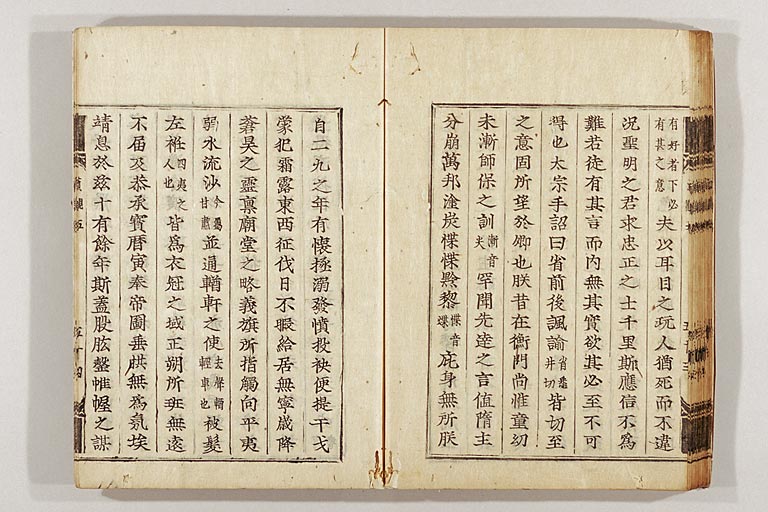 有好者下必有甚之意夫以耳目之玩人猶死而不違
況聖明之君求忠正之士千里斯應信不為
難若徒有其言而內無其實欲其必至不可
得也太宗手詔曰省前後諷諭省悉井切皆切至
之意固所望於卿也朕昔在衡門尚惟童幼
未漸師保之訓漸音夫罕聞先達之言值隋主
分崩萬邦塗炭惵惵黔黎惵音蝶庇身無所朕
自二九之年有懷拯溺發憤投袂便提干戈
蒙犯霜露東西征伐日不暇給居無寧歲降
蒼昊之靈稟廟堂之略義旗所指觸向平夷
弱水流沙今屬甘肅並通輶軒之使去聲輶輕車也被髮
左衽四夷之人也皆為衣冠之域正朔所班無遠
不屆及恭承寶曆寅奉帝圖垂拱無為氛埃
靖息於茲十有餘年斯蓋股肱罄帷幄之謀